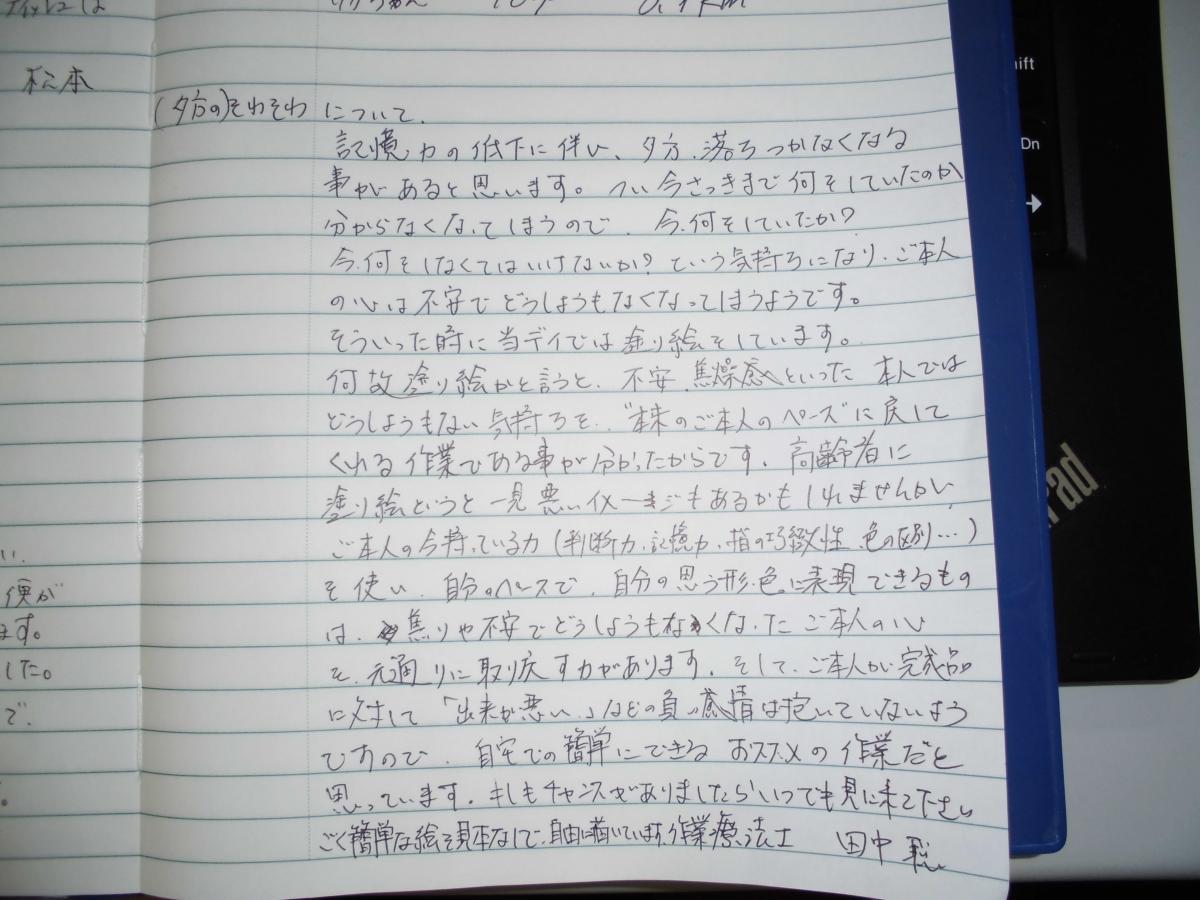 松本
い.
便が
ます。
した。
で.
(夕方の)そわそわ について.
記憶力の低下に伴い、夕方、落ちつかなくなる
事があると思います。つい今さっきまで何をしていたのか
分からなくなってしまうので、今、何をしていたか?
今、何をしなくてはいけないか?という気持ちになり、ご本人
の心は不安でどうしようもなくなってしまうようです。
そういった時に当デイでは塗り絵をしています。
何故塗り絵かと言うと、不安、焦燥感といった本人では
どうしようもない気持ちを、"本来のご本人のペース"に戻して
くれる作業である事が分かったからです。高齢者に
塗り絵というと一見悪いイメージもあるかもしれませんが、
ご本人の今持っている力(判断力、記憶力、指の巧緻性、色の区別…)
を使い、自分のペースで、自分の思う形、色に表現できるもの
は、焦りや不安でどうしようもなくなったご本人の心
を、元通りに取り戻す力があります。そして、ご本人が完成品
に対して「出来が悪い。」などの負の感情は抱いていないよう
ですので、自宅での簡単にできるおススメの作業だと
思っています。もしもチャンスがありましたらいつでも見に来て下さい
ごく簡単な絵を見本なしで、自由に描いています。作業療法士 田中 聡
ift
Dn
Pad